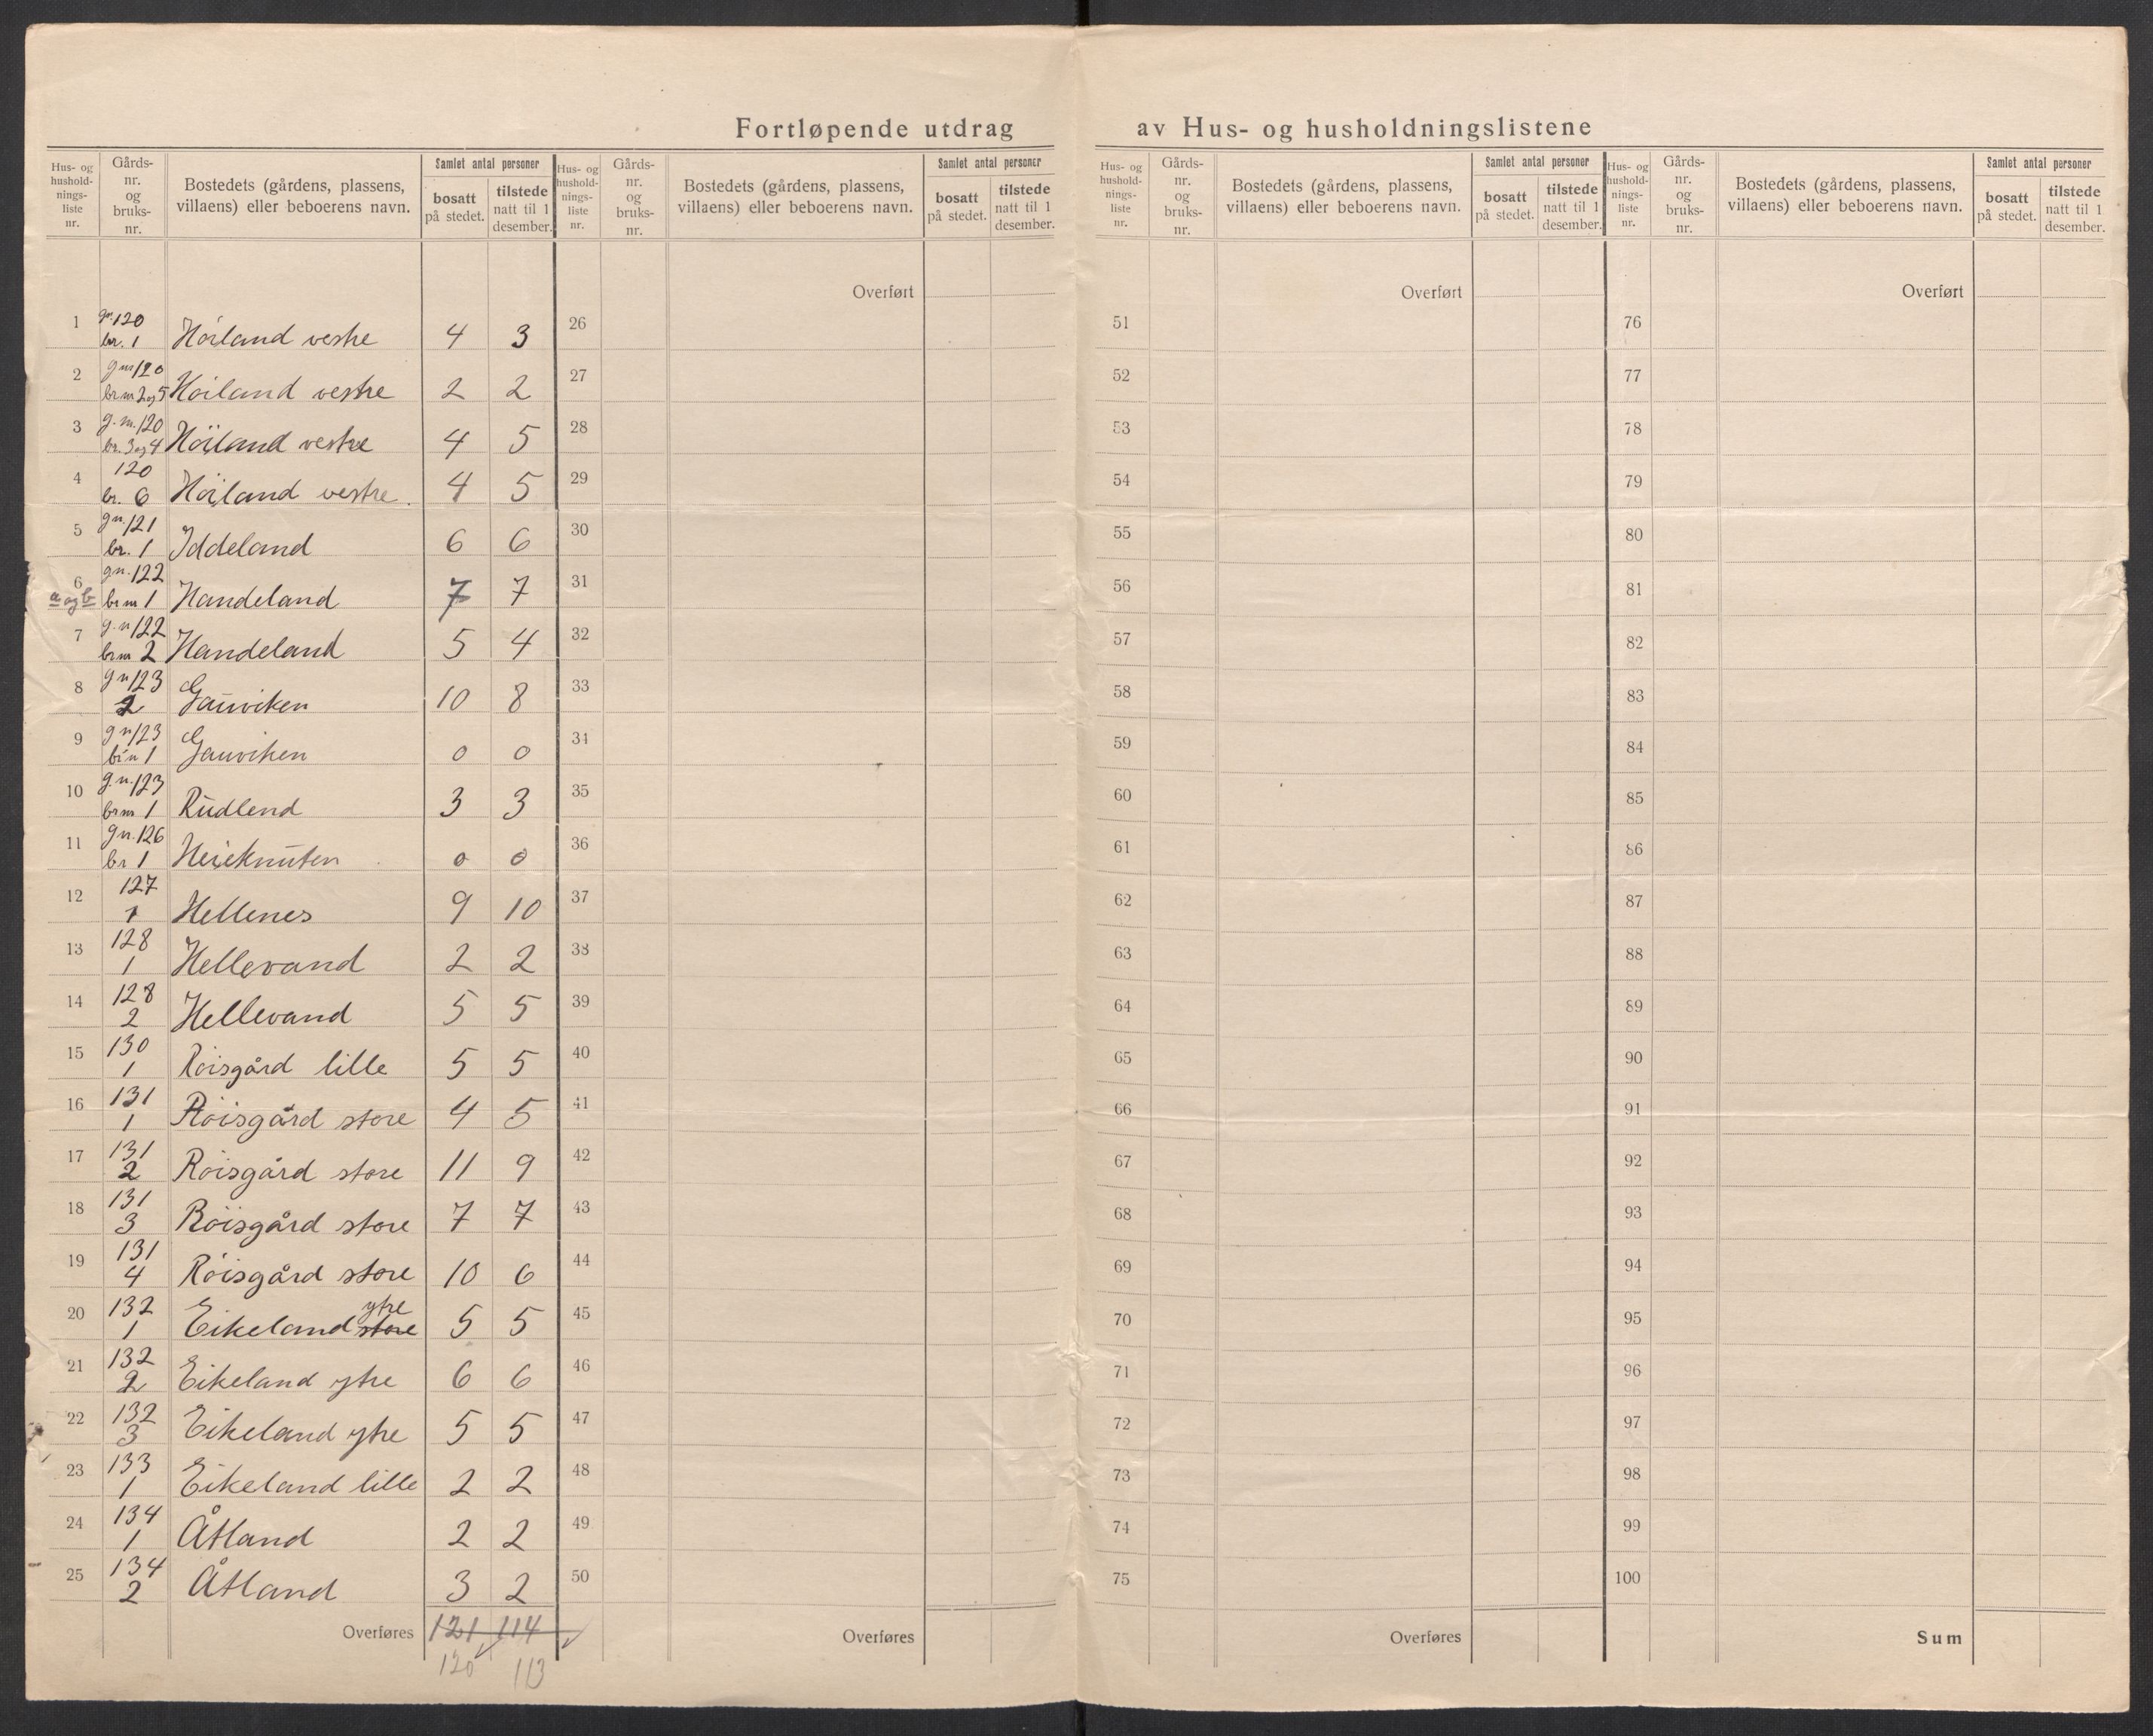 Fortløpende utdrag av Hus- og husholdningslistene
Hus- og hushold- nings- liste nr.
Gårds- nr. og bruks- nr.
Bostedets (gårdens, plassens, villaens) eller beboerens navn.
Samlet antal personer
bosatt på stedet.
tilstede natt til 1 desember.
Hus- og hushold- nings- liste nr.
Gårds- nr. og bruks- nr.
Bostedets (gårdens, plassens, villaens) eller beboerens navn.
Samlet antal personer
bosatt på stedet.
tilstede natt til 1 desember.
Hus- og hushold- nings- liste nr.
Gårds- nr. og bruks- nr.
Bostedets (gårdens, plassens, villaens) eller beboerens navn.
Samlet antal personer
bosatt på stedet.
tilstede natt til 1 desember.
Hus- og hushold- nings- liste nr.
Gårds- nr. og bruks- nr.
Bostedets (gårdens, plassens, villaens) eller beboerens navn.
Samlet antal personer
bosatt på stedet.
tilstede natt til 1 desember.
Overført Overført Overført
1 gn. 120 br. 1 Höiland vestre 4 3 26 51 76
2 gnr 120 brnr 2 og 5 Höiland vestre 2 2 27 52 77
3 g.nr. 120 br. 3 og 4 Höiland vestre 4 5 28 53 78
4 120 br. 6 Höiland vestre. 4 5 29 54 79
5 gn. 121 br. 1 Iddeland 6 6 30 55 80
6 a og b gn. 122 brnr 1 Handeland 7 7 31 56 81
7 g.n 122 brnr 2 Handeland 5 4 32 57 82
8 gn 123 2 Gauviken 10 8 33 58 83
9 gn 123 brn 1 Gauviken 0 0 34 59 84
10 g.n. 123 brnr 1 Rudlend 3 3 35 60 85
11 gn. 126 br 1 Heieknuten 0 0 36 61 86
12 127 1 Hellenes 9 10 37 62 87
13 128 1 Hellevand 2 2 38 63 88
14 128 2 Hellevand 5 5 39 64 89
15 130 1 Röisgård lille 5 5 40 65 90
16 131 1 Röisgård store 4 5 41 66 91
17 131 2 Röisgård store 11 9 42 67 92
18 131 3 Röisgård store 7 7 43 68 93
19 131 4 Röisgård store 10 6 44 69 94
20 132 1 Eikeland store ytre 5 5 45 70 95
21 132 2 Eikeland ytre 6 6 46 71 96
22 132 3 Eikeland ytre 5 5 47 72 97
23 133 1 Eikeland lille 2 2 48 73 98
24 134 1 Åtland 2 2 49 74 99
25 134 2 Åtland 3 2 50 75 100
Overføres 121 114 Overføres Overføres Sum
120 113